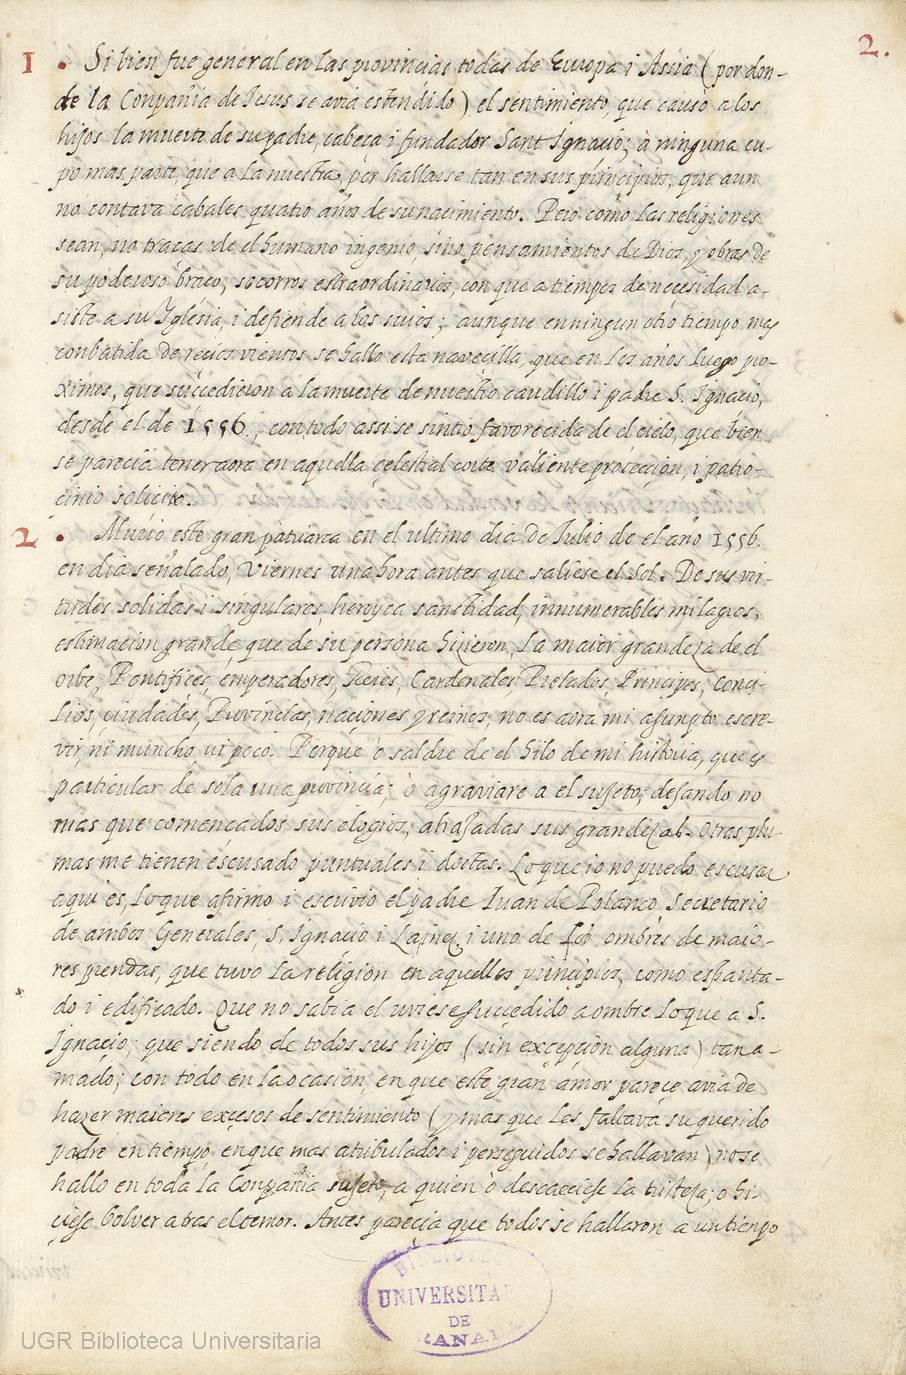 2.
1 . Si bien fue general en las provincias todas de Europa i Assia (por don-
de la Conpañia de Iesus se avia estendido) el sentimiento, que causò a los
hijos la muerte de su padre, cabeça i fundador Sant Ignacio; à ninguna cu-
po mas parte, que a la nuestra, por hallarse tan en sus principios, que aun
no contava cabales quatro años de su nacimiento. Pero como las religiones
sean, no traças de el humano ingenio, sino pensamientos de Dios, y obras de
su poderoso braço, socorros estraordinarios, con que a tiempos de necesidad a-
siste a su Iglesia, i defiende a los suios; aunque en ningun otro tiempo mas
conbatida de recios vientos se hallo esta navecilla, que en los años luego pro-
ximos, que succedieron a la muerte de nuestro caudillo i padre S. Ignacio,
desde el de 1556., con todo assi se sintio favorecida de el cielo, que bien
se parecia tener aora en aquella celestial corte valiente proteccion, i patro-
cinio solicito.
2 . Murio este gran patriarca en el ultimo dia de Iulio de el año 1556.
en dia señalado, Viernes una hora antes que saliese el Sol. De sus vir-
tudes solidas i singulares, heroyca sanctidad, innumerables milagros,
estimacion grande que de su persona hizieron, la maior grandeza de el
orbe, Pontifices, emperadores, Reies, Cardenales Prelados, Principes, Conci-
lios, ciudades, Provincias, naciones y reinos, no es aora mi asunpto escre-
vir, ni muncho, ni poco. Porque ò saldre de el hilo de mi historia, que es
particular de sola una provincia; ò agraviare a el sujeto; dejando no
mas que comencados sus elogios, atajadas sus grandezas. Otras plu-
mas me tienen escusado puntuales i doctas. Lo que io no puedo escusar
aqui es, lo que afirmo i escrivio el padre Iuan de Polanco Secretario
de ambos Generales, S. Ignacio i Laynez, i uno de los ombres de maio-
res prendas, que tuvo la religion en aquellos principios, como espanta-
do i edificado. Que no sabia el uviese succedido a ombre lo que a S.
Ignacio; que siendo de todos sus hijos (sin excepcion alguna) tan a-
mado; con todo en la ocasion, en que este gran amor parece avia de
hazer maiores excesos de sentimiento (y mas que les faltava su querido
padre en tiempo en que mas atribulados i perseguidos se hallavan) no se
hallo en toda la Conpañia sujeto, a quien ò descaeciese la tristeza; o hi-
ciese bolver atras el temor. Antes parecia que todos se hallaron a un tiempo
BIBLIOTECA
UNIVERSITARIA
DE
GRANADA
UGR Biblioteca Universitaria